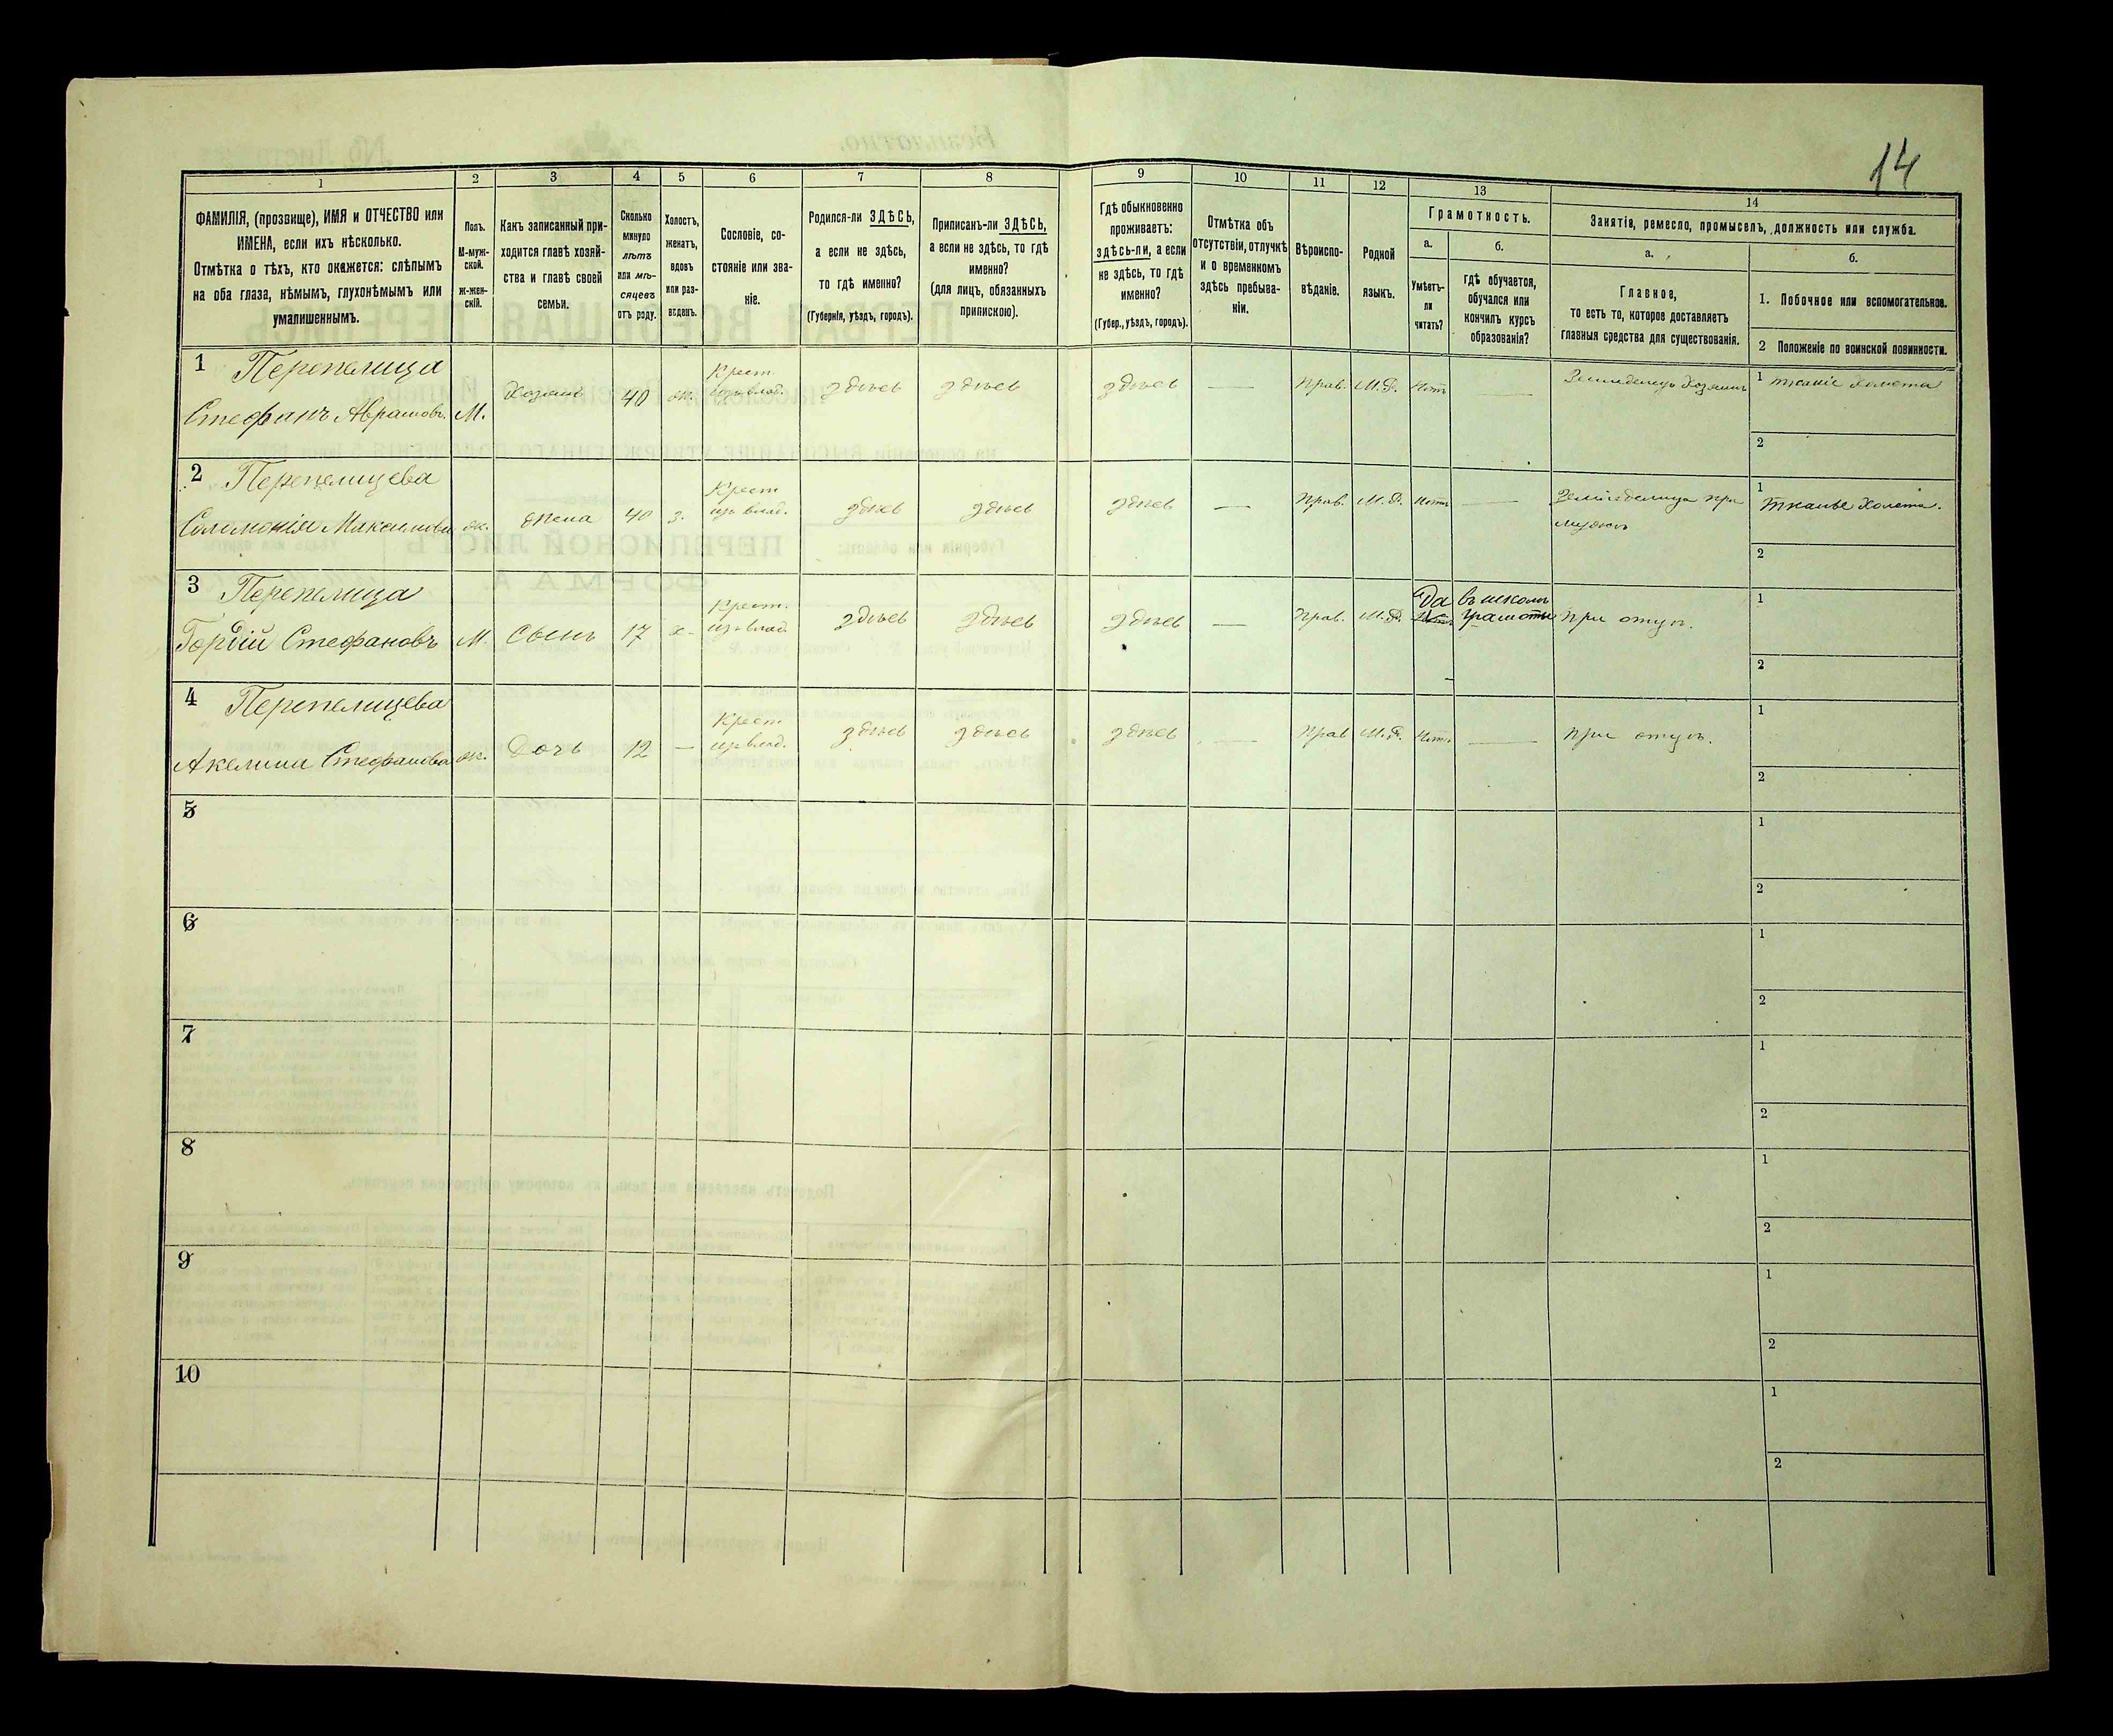 14
1 2 3 4 5 6 7 8 9 10 11 12 13 14
ФАМИЛІЯ, (прозвище), ИМЯ и ОТЧЕСТВО или
ИМЕНА, если ихъ нѣсколько.
Отмѣтка о тѣхъ, кто окажется: слѣпымъ
на оба глаза, нѣмымъ, глухонѣмымъ или
умалишеннымъ.
Полъ.
М-муж-
ской.
ж-жен-
скій.
Какъ записанный при-
ходится главѣ хозяй-
ства и главѣ своей
семьи.
Сколько
минуло
лѣтъ
или мѣ-
сяцевъ
отъ роду.
Холостъ,
женатъ,
вдовъ
или раз-
веденъ.
Сословіе, со-
стояніе или зва-
ніе.
Родился-ли ЗДѢСЬ,
а если не здѣсь,
то гдѣ именно?
(Губернія, уѣздъ, городъ).
Приписанъ-ли ЗДѢСЬ,
а если не здѣсь, то гдѣ
именно?
(для лицъ, обязанныхъ
припискою).
Гдѣ обыкновенно
проживаетъ:
здѣсь-ли, а если
не здѣсь, то гдѣ
именно?
(Губер., уѣздъ, городъ).
Отмѣтка объ
отсутствіи, отлучкѣ
и о временномъ
здѣсь пребыва-
ніи.
Вѣроиспо-
вѣданіе.
Родной
языкъ.
Грамотность.
а.
Умѣетъ-
ли
читать?
б.
гдѣ обучается,
обучался или
кончилъ курсъ
образованія?
Занятія, ремесло, промыселъ, должность или служба.
а.
Главное,
то есть то, которое доставляетъ
главныя средства для существованія.
б.
1. Побочное или вспомогательное.
2 Положеніе по воинской повинности.
1 Перепелица
Стефанъ Аврамовъ. М. Хозяинъ 40 ж. Крест.
изъ влад. здѣсь здѣсь здѣсь — Прав. М.Р. Нѣтъ — Земледелецъ Хозяинъ 1 тканіе холста
2
2 Перепелицева
Соломонія Максимова ж. жена 40 з. Крест
изъ влад. здѣсь здѣсь здѣсь — Прав. М.Р. Нѣтъ — Земледелица при
мужѣ 1 тканье холста.
2
3 Перепелица
Гордій Стефановъ М. Сынъ 17 х. Крест.
изъ влад. здѣсь здѣсь здѣсь — Прав. М.Р. Да Нѣтъ въ школѣ
грамоты при отцѣ. 1
2
4 Перепелицева
Акелина Стефанова ж. Дочь 12 — Крест
изъ влад. здѣсь здѣсь здѣсь — Прав М.Р. Нѣтъ — при отцѣ. 1
2
5 1
2
6 1
2
7 1
2
8 1
2
9 1
2
10 1
2